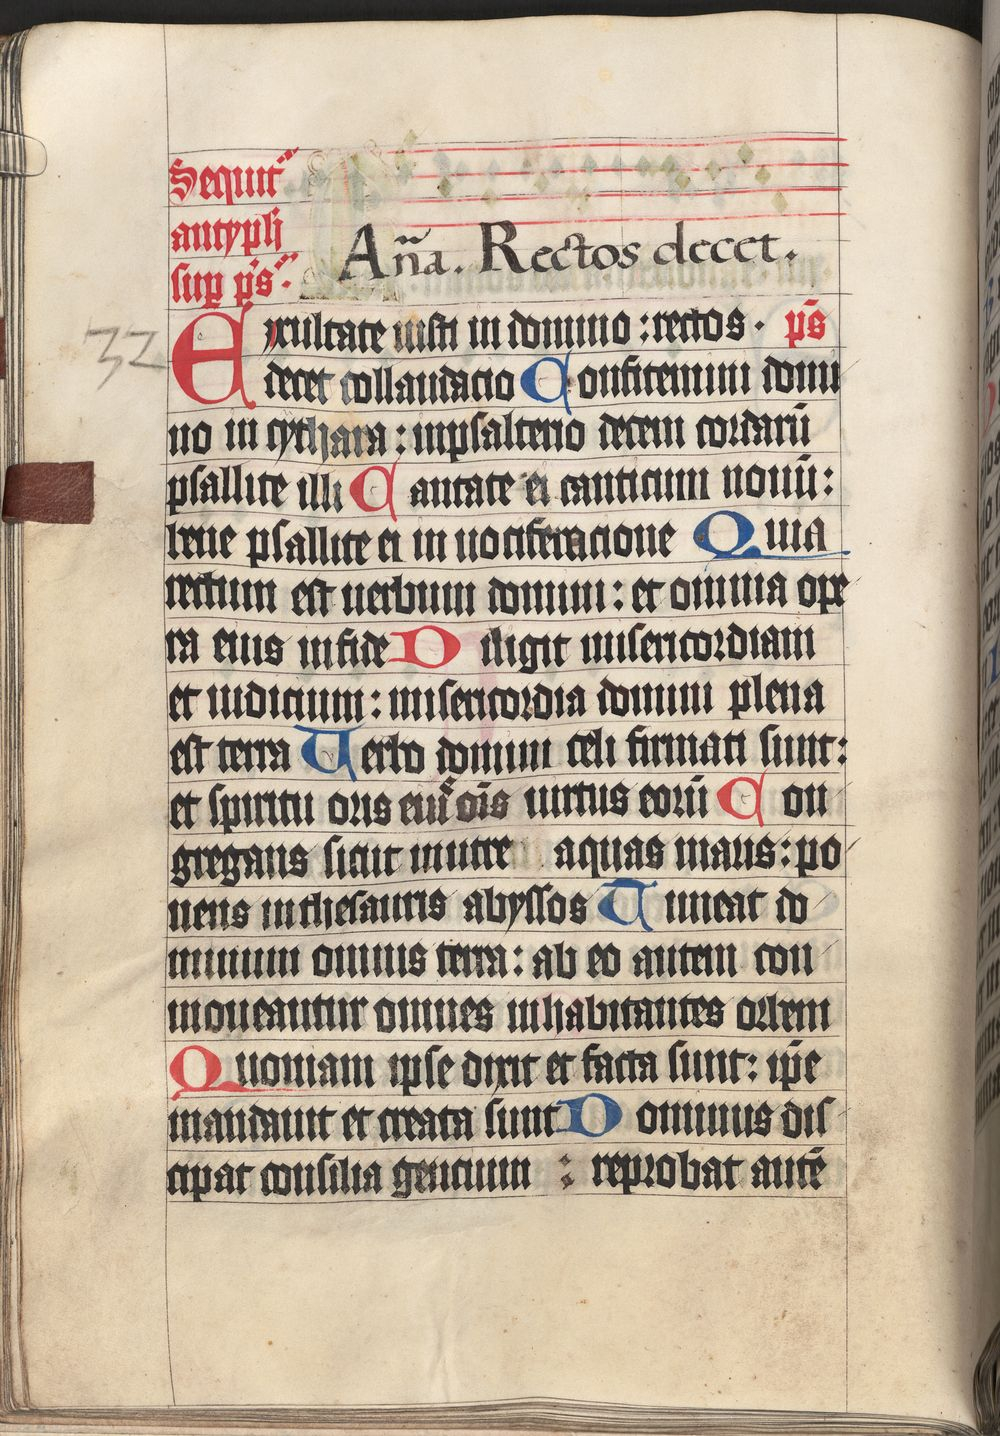 Sequit᷑
antyph
sup p̄s
Aña. Rectos decet.
32
Exultate iusti in domino : rectos · p̄s
decet collaudacio Confitemini domi
no in cythara : inpsalterio decem cordarū
psallite illi Cantate ei canticum nouū :
bene psallite ei in uociferacione Quia
rectum est uerbum domini : et omnia ope
ra eius infide Diligit misericordiam
et iudicium : misericordia domini plena
est terra Uerbo domini celi firmati sunt :
et spiritu oris eiꝰ oīs uirtus eorū Con
gregans sicut inutre aquas maris : po
nens inthesauris abyssos Timeat do
minum omnis terra : ab eo autem con
moueantur omnes inhabitantes orbem
Quoniam ipse dixit et facta sunt : ip̄e
mandauit et creata sunt Dominus dis
cipat consilia gencium : reprobat autē